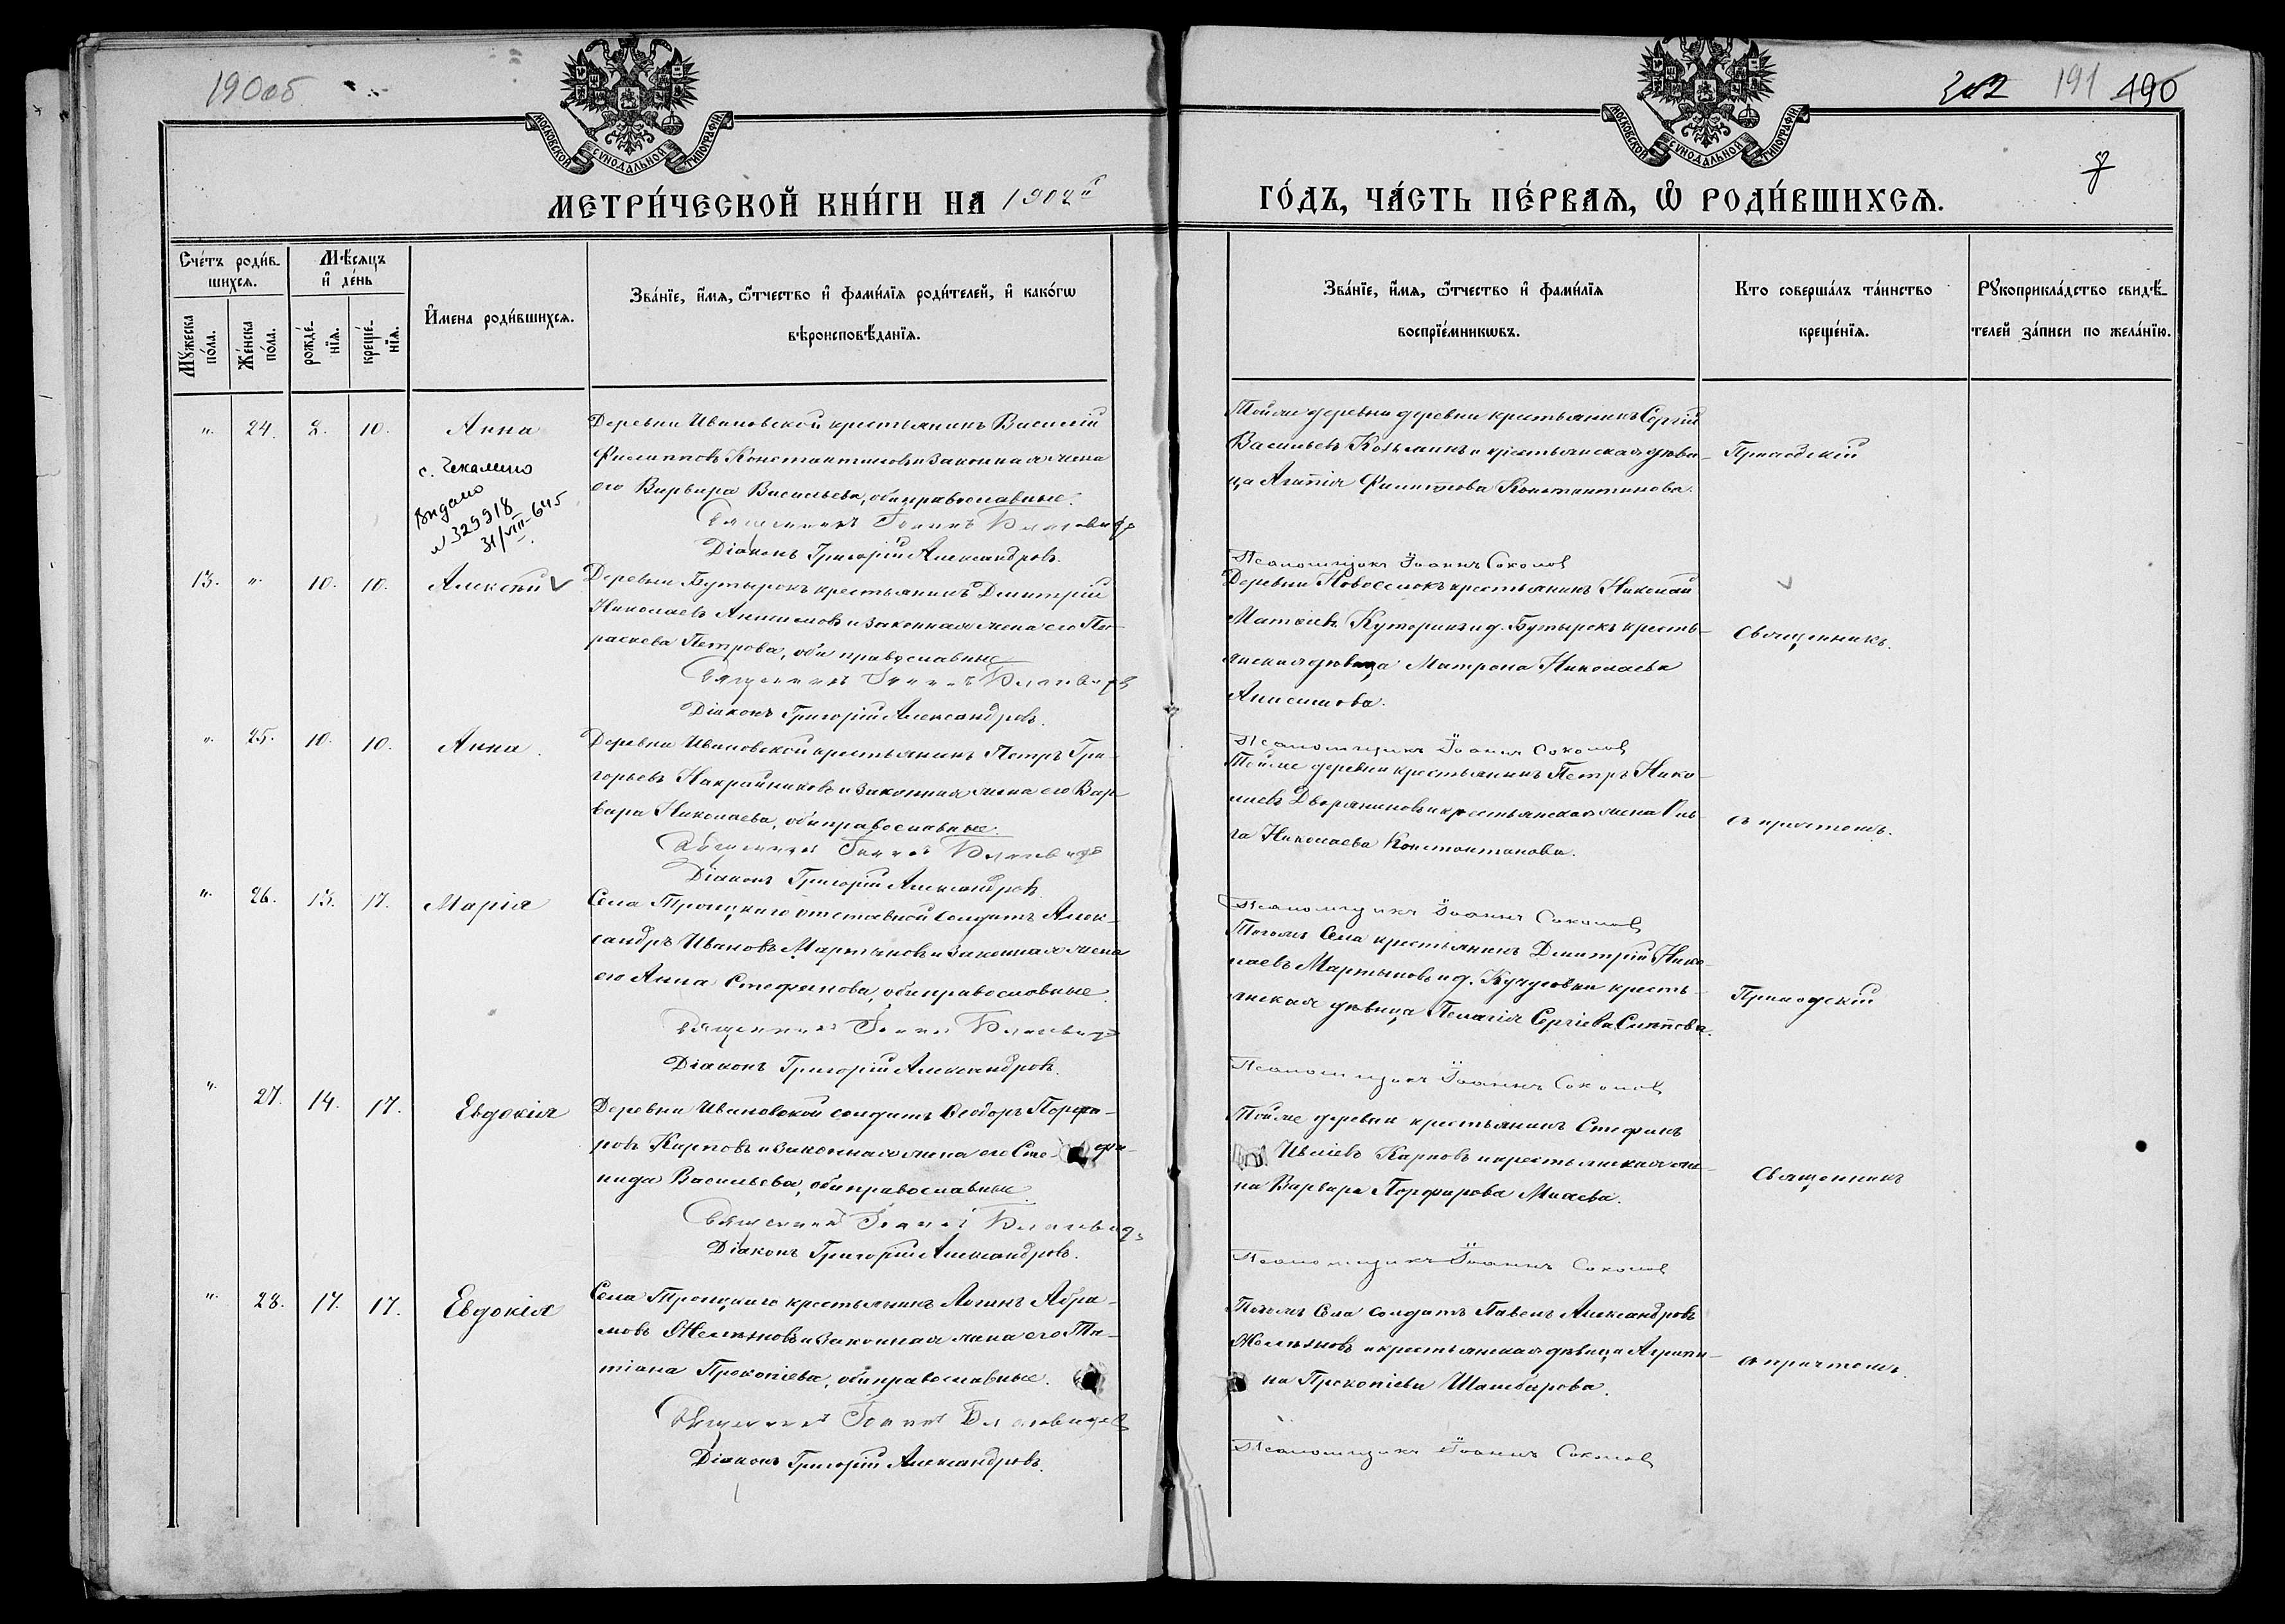 190об
202 191 190
МОСКОВСКОЙ СѴНОДАЛЬНОЙ ТИПОГРАФІИ
МОСКОВСКОЙ СѴНОДАЛЬНОЙ ТИПОГРАФІИ
МЕТРИ́ЧЕСКОЙ КНИ́ГИ НА 1902й
ГО́ДЪ, ЧА́СТЬ ПЕ́РВАЯ, Ѡ҆ РОДИ́ВШИХСЯ.
Сче́тъ роди́в-
шихся.
Мꙋ́жеска по́ла.
Же́нска по́ла.
Мѣ́сяцъ
и҆ де́нь
рожде́-
нїя.
креще́-
нїя.
И҆мена роди́вшихся.
Зва́нїе, и҆́мя, ѻ҆́тчество и҆ фами́лїя роди́телей, и҆ како́гѡ
вѣроисповѣ́данїя.
Зва́нїе, и҆́мя, ѻ҆́тчество и҆ фами́лїя
воспрїе́мникѡвъ.
Кто соверша́лъ та́инство
креще́нїя.
Рꙋкоприкла́дство свидѣ́-
телей за́писи по жела́нїю.
" 24. 2. 10. Анна
с. Чекалино
Видано
N 329918
31/VIII-645
Деревни Ивановской крестьянинъ Василій
Филипповъ Константиновъ и законная жена
его Варвара Васильева, оба православные.
Священникъ Іоаннъ
Діаконъ Григорій Александровъ.
Тойже деревни деревни крестьянинъ Сергій
Васильевъ Козьминъ и крестьянская дѣви-
ца Агапія Филиппова Константинова.
Псаломщикъ Іоаннъ Соколов
Приходскій
13. " 10. 10. Алексѣй
Деревни Бутырокъ крестьянинъ Димитрій
Николаевъ Анисимовъ и законная жена его Па-
раскева Петрова, оба православные
Священникъ Іоаннъ
Діаконъ Григорій Александровъ.
Деревни Новоселокъ крестьянинъ Николай
Матѳіевъ Куторинъ и д. Бутырокъ кресть-
янская дѣвица Матрона Николаева
Анисимова.
Псаломщикъ Іоаннъ Соколов
Священникъ.
" 25. 10. 10. Анна.
Деревни Ивановской крестьянинъ Петръ Гри-
горьевъ Накрайниковъ и законная жена его Вар-
вара Николаева, оба православные.
Священникъ Іоаннъ
Діаконъ Григорій Александровъ.
Тойже деревни крестьянинъ Петръ Нико-
лаевъ Дворяниновъ и крестьянская жена Оль-
га Николаева Константинова.
Псаломщикъ Іоаннъ Соколов
съ причтомъ.
" 26. 13. 17. Марія
Села Троицкаго отставной солдатъ Алек-
сандръ Ивановъ Мартыновъ и законная жена
его Анна Стефанова, оба православные.
Священникъ Іоаннъ
Діаконъ Григорій Александровъ.
Тогожъ села крестьянинъ Димитрій Нико-
лаевъ Мартыновъ и д. кресть-
янская дѣвица Пелагія Сергіева
Псаломщикъ Іоаннъ Соколов
Приходскій
" 27. 14. 17. Евдокія
Деревни Ивановской солдатъ Ѳеодоръ Порфи-
ровъ Карповъ и законная жена его Сте-фа-
нида Васильева, оба православные.
Священникъ Іоаннъ
Діаконъ Григорій Александровъ.
Тойже деревни крестьянинъ Стефанъ
Карповъ и крестьянская же-
на Варвара Порфирова
Псаломщикъ Іоаннъ Соколов
Священникъ
" 28. 17. 17. Евдокія
Села Троицкаго крестьянинъ Логинъ Абра-
мовъ и законная жена его Та-
тіана Прокопіева, оба православные.
Священникъ Іоаннъ
Діаконъ Григорій Александровъ.
Тогожъ села солдатъ Павелъ Александровъ
и крестьянская дѣвица Агрипи-
на Прокопіева Шамбарова.
Псаломщикъ Іоаннъ Соколов
съ причтомъ.